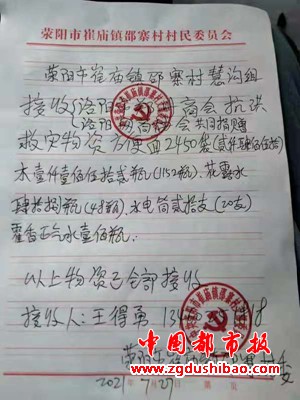 荥阳市崔庙镇邵寨村村民委员会
荥阳市崔庙镇邵寨村慧沟组
接收(洛阳 商会 抗洪
(洛阳 会共同捐赠
救灾物资方便面2450袋(贰仟肆佰伍拾)
水壹仟壹佰伍拾贰瓶(1152瓶)、花露水
肆拾捌瓶(48瓶)、手电筒贰拾支(20支)
藿香正气水壹佰瓶.
以上物资已全部接收
接收人:王得勇 13 18
荥阳市 村委
2021年7月27日
中国都市报
www.zgdushibao.com